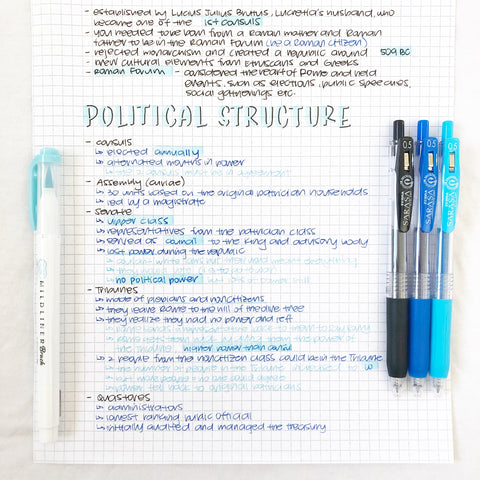 - established by Lucius Julius Brutus, Lucretia's husband, who
became one of the 1st consuls
- you needed to be born from a Roman mother and Roman
father to be in the Roman Forum (be a Roman citizen)
- rejected monarchism and created a republic around 509 BC
- mew cultural elements from Etruscans and Greeks
- Roman Forum - considered the heart of Rome and held
events, such as elections, public speeches,
social gatherings etc.
POLITICAL STRUCTURE
- consuls
↳ elected annually
↳ alternated months in power
↳ the 2 consuls must be in agreement
- Assembly (curiae)
↳ 30 units based on the original patrician households
↳ led by a magistrate
- Senate
↳ upper class
↳ representatives from the patrician class
↳ served as council to the king and advisory body
↳ lost power during the republic
no political power
- Tribunes
↳ made of plebians and noncitizens
↳ they leave Rome to the hill of the olive tree
↳ they realize they had no power and left
the tribune higher power than curiae
↳ 2 people from the noncitizen class could be in the Tribune
↳ the number of people in the Tribune increased to 10
↳ power fell back to original patricians
- Quastores
↳ administrators
↳ lowest ranking public official
↳ initially audited and managed the treasury
MILDLINER Brush
0.5
SARASA
0.5
SARASA
0.5
SARASA